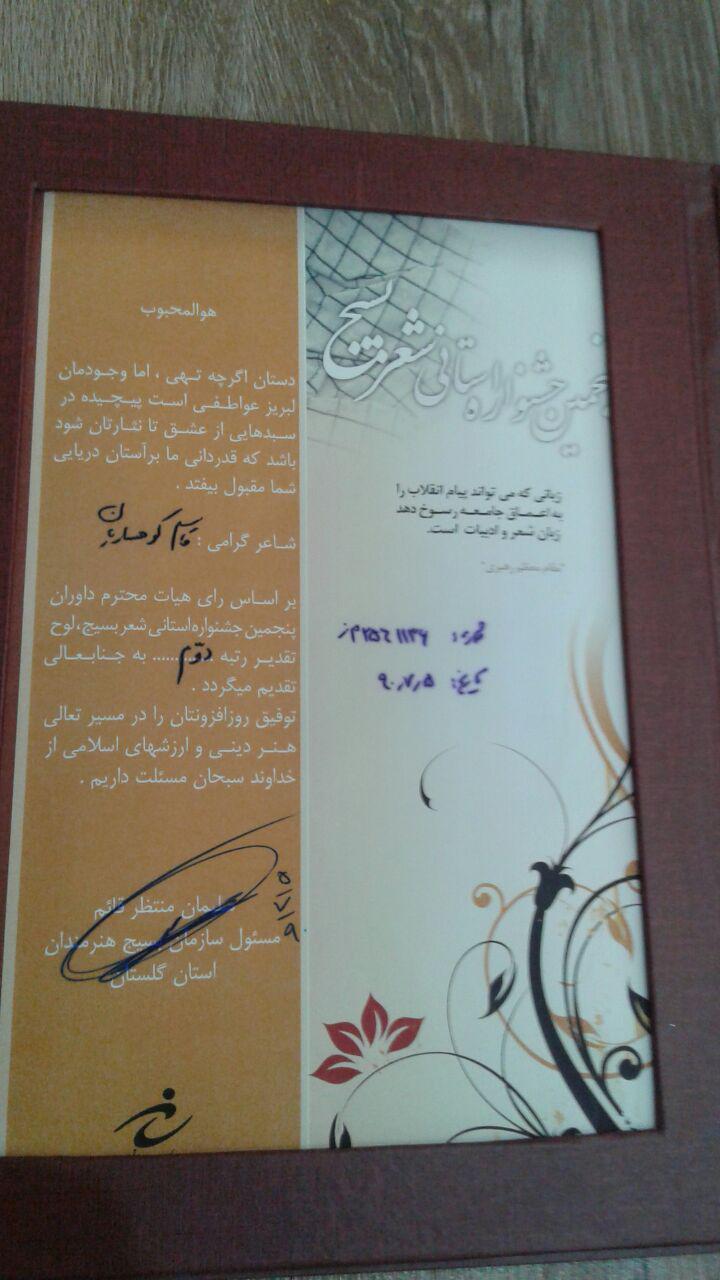 پنجمین جشنواره استانی شعر بسیج
زبانی که می تواند پیام انقلاب را
به اعماق جامعه رسوخ دهد
زبان شعر و ادبیات است.
"مقام معظم رهبری"
تاریخ: ۹۰٫۷٫۵
هوالمحبوب
دستان اگرچه تهی ، اما وجودمان
لبریز عواطفی است پیچیده در
سبدهایی از عشق تا نثارتان شود
باشد که قدردانی ما برآستان دریایی
شما مقبول بیفتد .
شاعر گرامی : قاسم کوهساریان
بر اساس رای هیات محترم داوران
پنجمین جشنواره استانی شعر بسیج، لوح
تقدیر رتبه ..... دوّم ..... به جنابعالی
تقدیم میگردد .
توفیق روزافزونتان را در مسیر تعالی
هنر دینی و ارزشهای اسلامی از
خداوند سبحان مسئلت داریم .
سلیمان منتظر قائم
مسئول سازمان بسیج هنرمندان
استان گلستان
۹۰/۷/۵